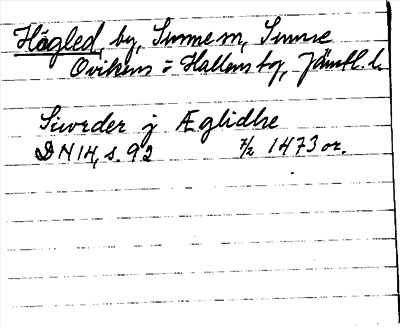 Högled, by, Sunne sn, Sunne
Ovikens o Hallens tg, Jämtl. l.
Siwrder j Æglidhe
DN 14, s. 92 7/2 1473 or.